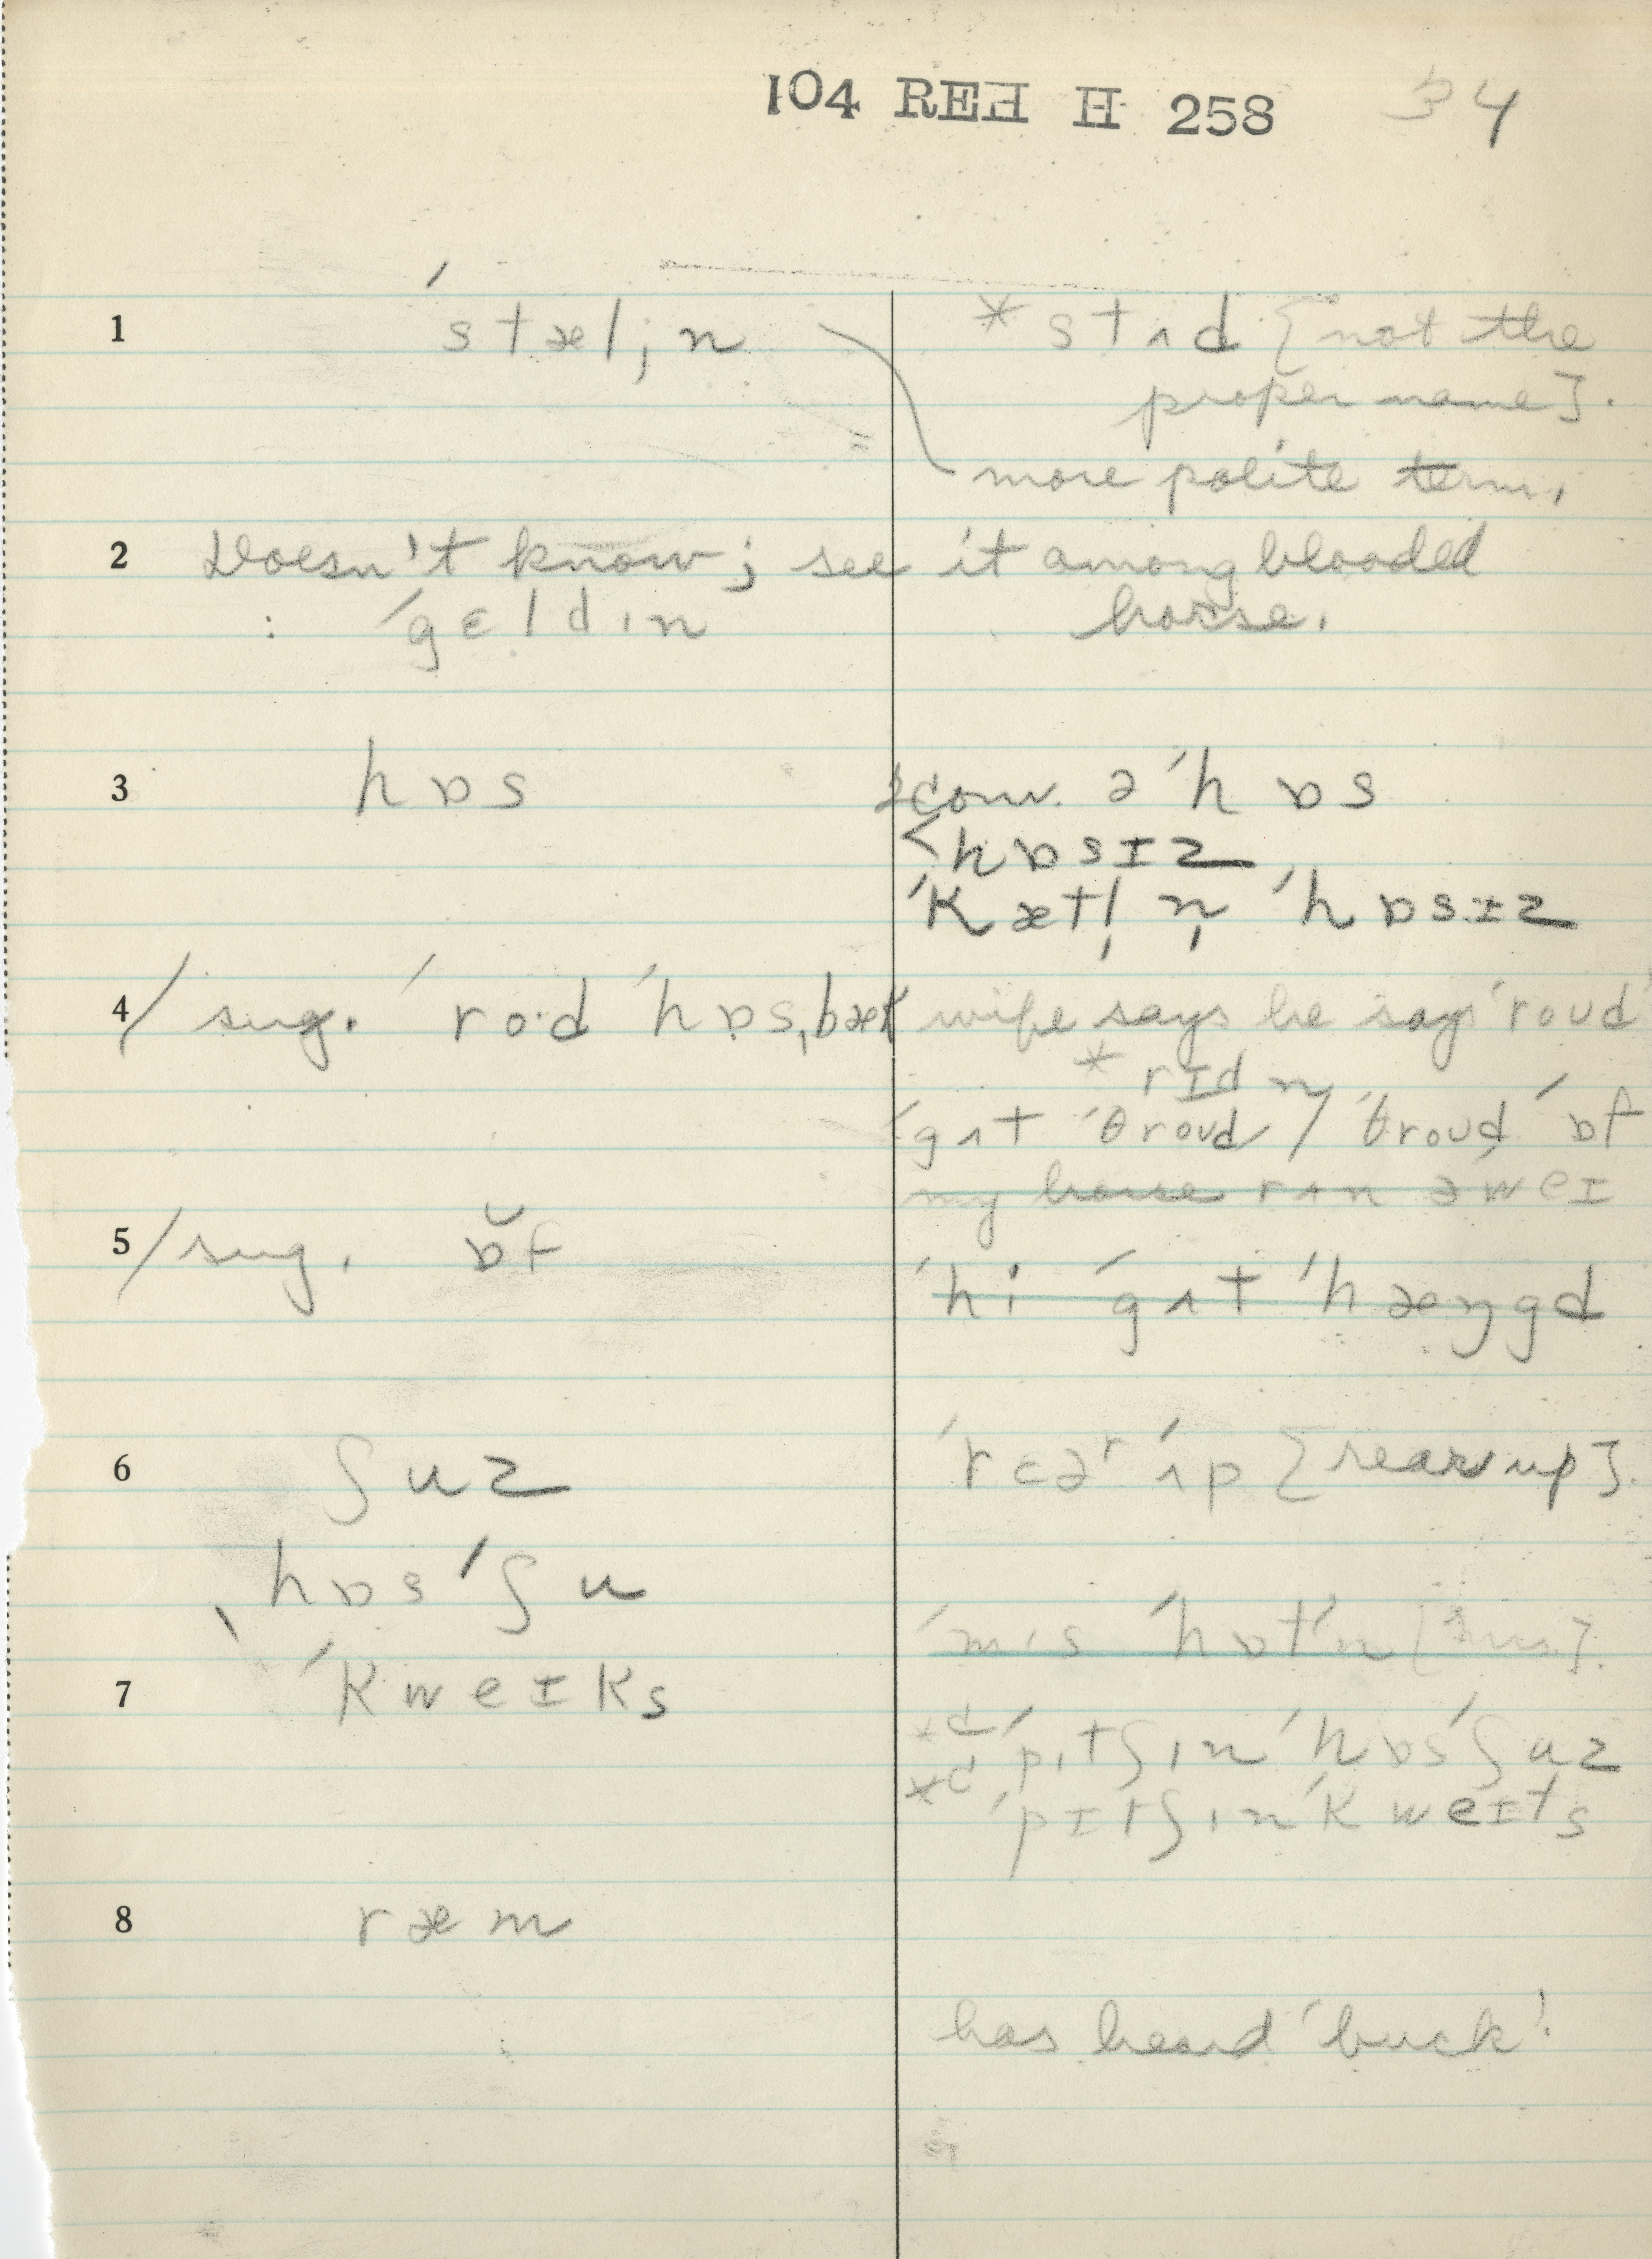 104 REH H 258 34
1 ˈstæljn * stʌd [not the
proper name].
more polite term.
2 Doesn't know; see it among blooded
: ˈgɛldɪn horse.
3 hɒs conv. ə ˈhɒs
<hɒsɪz
ˈkætl̩ n̩ ˈhɒsɪz
4 / sug. ˈro·d ˈhɒsˌbæk wife says he says 'roud'
* rɪd n
ˈgʌt ˈθroud / ˈθroud ˈɒf
my horse rʌn əˈweɪ
5 / sug. ɒ̆f
ˈhi ˈgʌt ˈhæŋgd
6 ʃuz ˈrɛəʳ ˈʌp [rears up].
ˌhɒsˈʃu
ˈmɪs ˈhɒtˈn
7 ˈkweɪks
*d ˈpɪtʃɪn ˈhɒsˈʃuz
*d ˈpɪtʃɪn ˈkweɪts
8 ræm
has heard 'buck'.